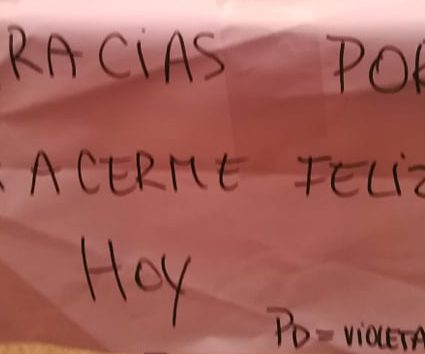 RACIAS POR
ACERME FELIZ
HOY
PD = VIOLETA